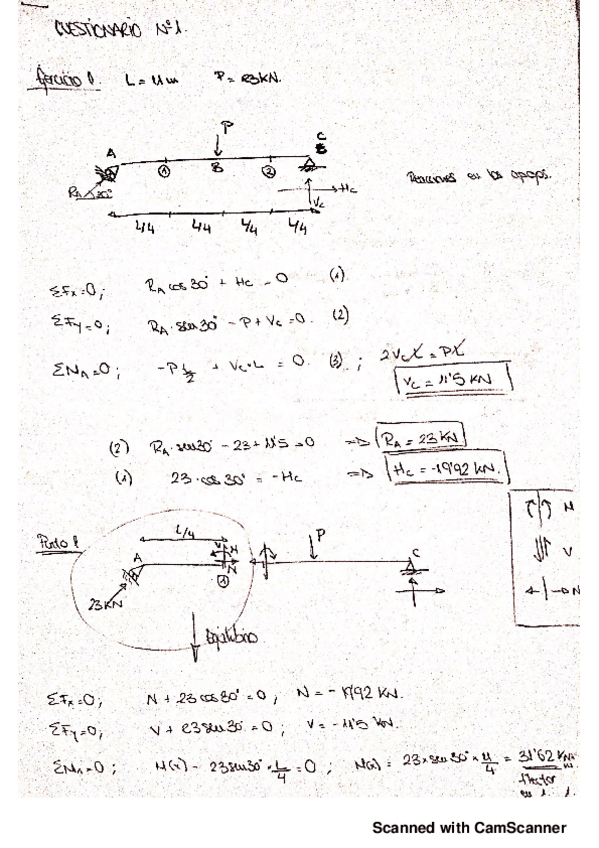 CUESTIONARIO Nº1.
Ejercicio 1. L = 11 m P = 23 KN.
P
A
C
B
1
B
2
RA 30°
HC
VC
Reacciones en los apoyos.
L/4 L/4 L/4 L/4
ΣFx=0; RA cos 30° + HC = 0 (1)
ΣFy=0; RA · sen 30° - P + VC = 0. (2)
ΣMA=0; -P L/2 + VC·L = 0. (3) ; 2VC L = P L
VC = 11'5 KN
(2) RA · sen30° - 23 + 11'5 = 0 => RA = 23 KN
(1) 23 · cos 30° = -HC => HC = -19'92 KN.
M
V
N
Punto 1
L/4
A
V M
N
1
P
C
23 KN
Equilibrio
ΣFx=0; N + 23 cos 30° = 0 ; N = - 19'92 KN.
ΣFy=0; V + 23 sen 30° = 0 ; V = - 11'5 KN.
ΣM1=0 ; M(x) - 23 sen 30° · L/4 = 0 ; M(x) = 23 × sen 30° × 11/4 = 31'62 KN×m
flector
en 1
Scanned with CamScanner